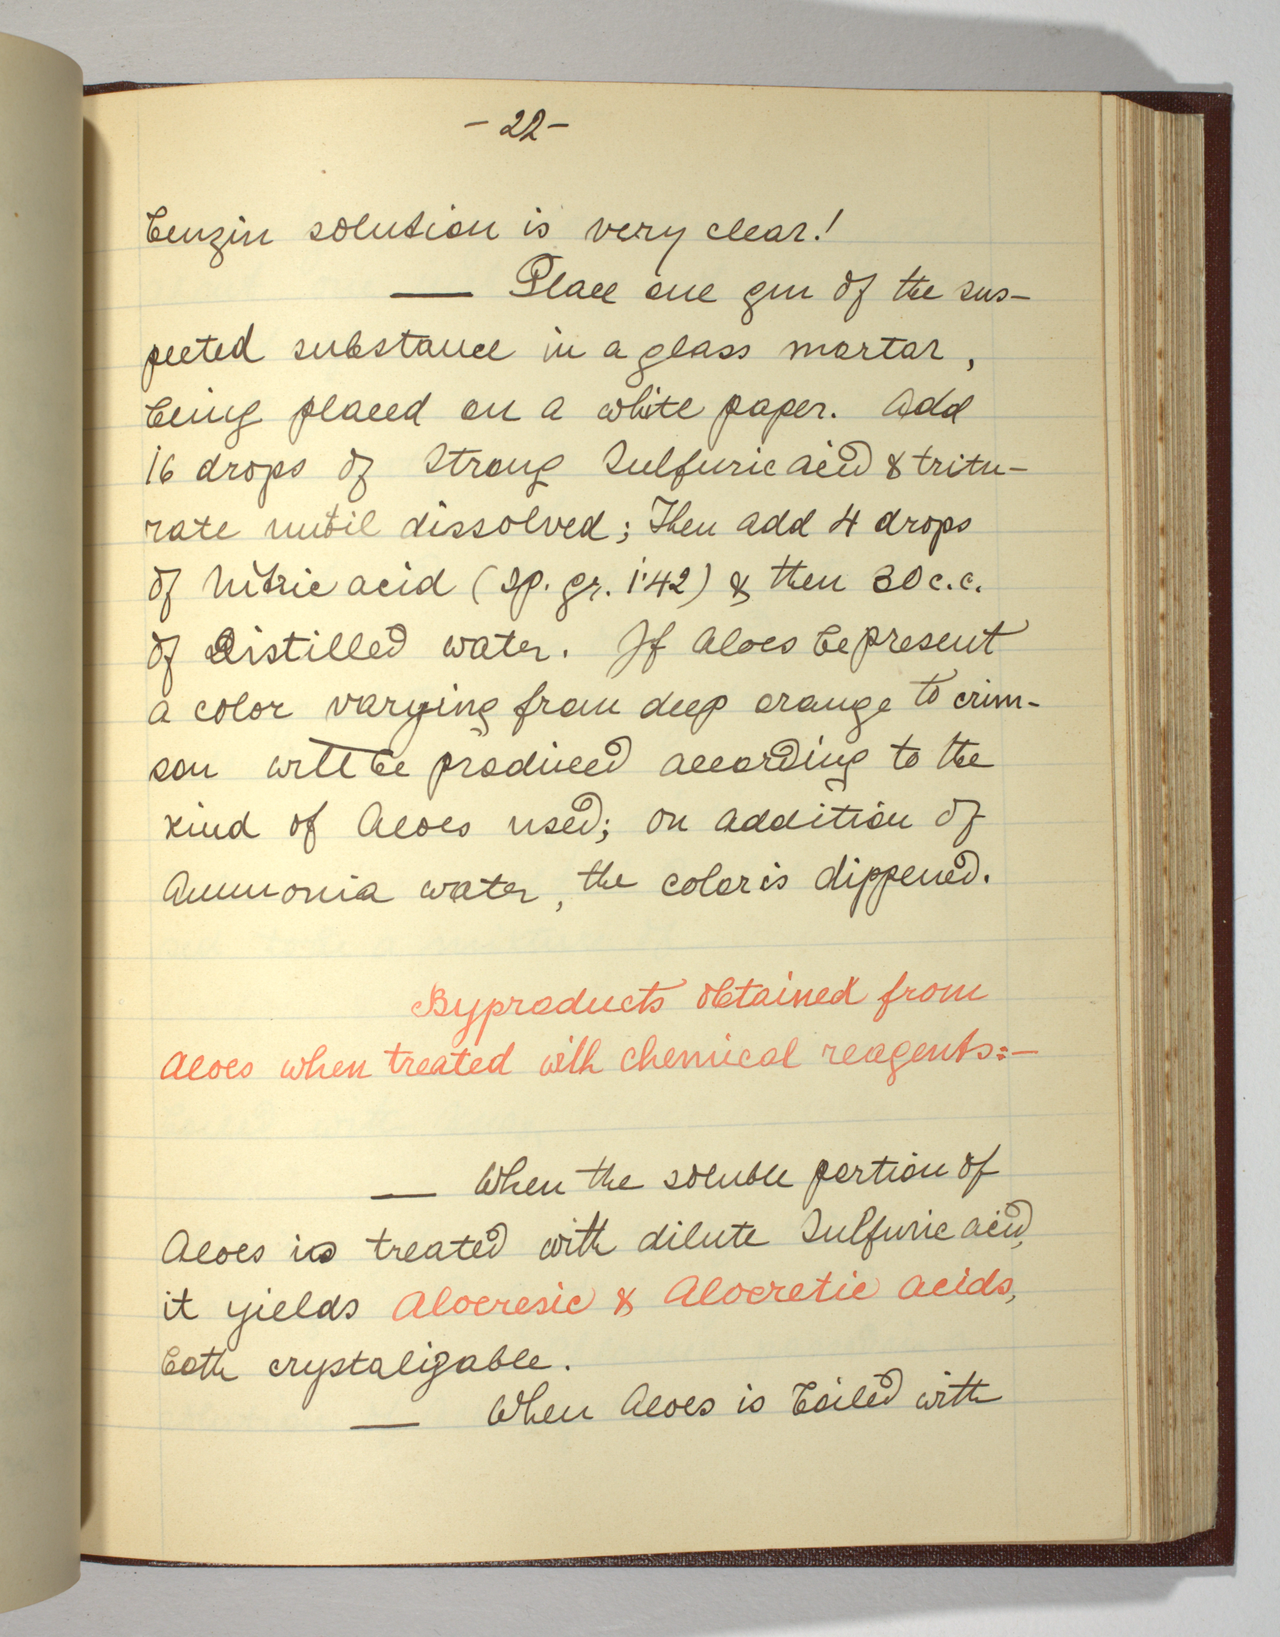 - 22 -
benzin solution is very clear!
— Place one gm of the sus-
pected substance in a glass mortar,
being placed on a white paper. Add
16 drops of Strong Sulfuric acid & tritu-
rate until dissolved; Then add 4 drops
of Nitric acid (Sp. gr. 1.42) & then 30 c.c.
of Distilled water. If Aloes be present
a color varying from deep orange to crim-
son will be produced according to the
kind of Aloes used; on addition of
Ammonia water, the color is dippened.
Byproducts obtained from
Aloes when treated with chemical reagents:-
— When the soluble portion of
Aloes is treated with dilute Sulfuric acid,
it yields Aloeresic & Aloeretic acids,
both crystalizable.
— When Aloes is boiled with